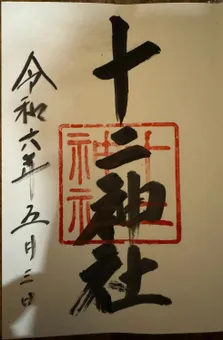 十二神社
十二
神社
令和六年五月三日